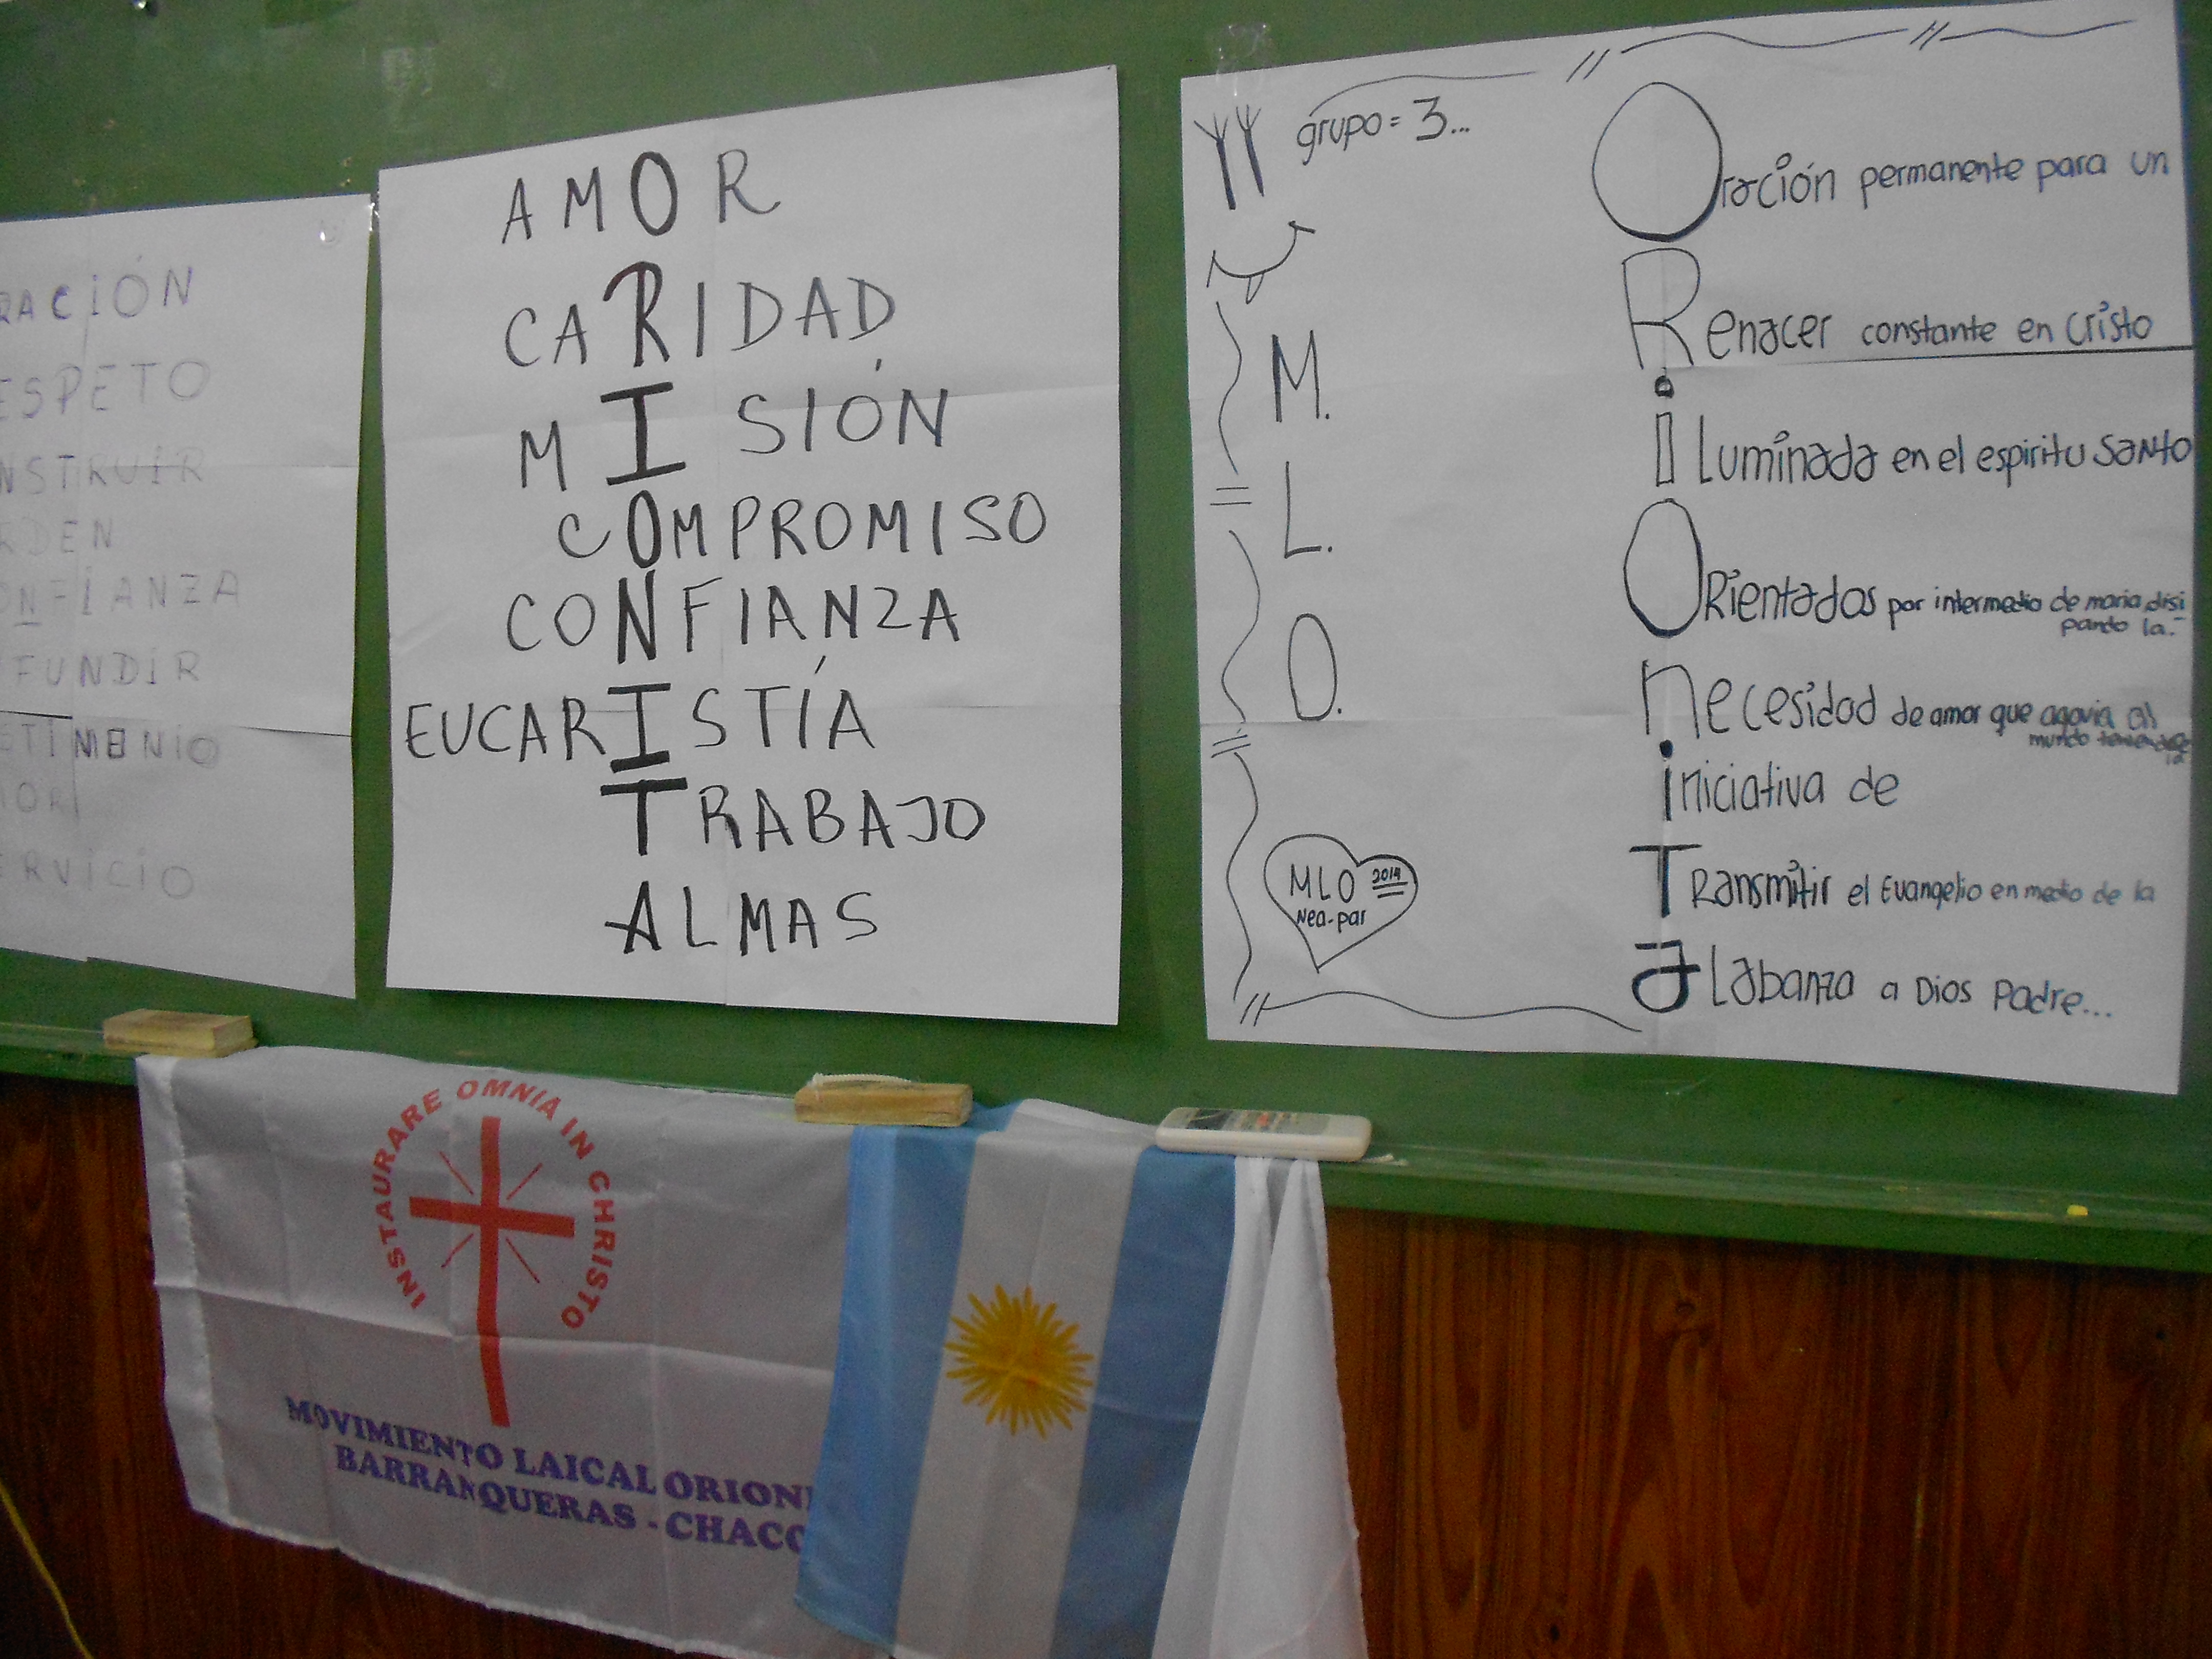 RACIÓN
ESPETO
NSTRUIR
RDEN
ONFIANZA
FUNDIR
STIMONIO
MOR
ERVICIO
AMOR
CARIDAD
MISIÓN
COMPROMISO
CONFIANZA
EUCARISTÍA
TRABAJO
ALMAS
grupo = 3...
M.
L.
O.
MLO 2014
Nea-par
Oración permanente para un
Renacer constante en Cristo
iLuminada en el espiritu Santo
ORientados por intermedio de maria disi
pando la.-
necesidad de amor que agovia al
mundo
iniciativa de
TRansmitir el Evangelio en medio de la
aLabanza a Dios Padre...
INSTAURARE OMNIA IN CHRISTO
MOVIMIENTO LAICAL ORIONI
BARRANQUERAS - CHACO